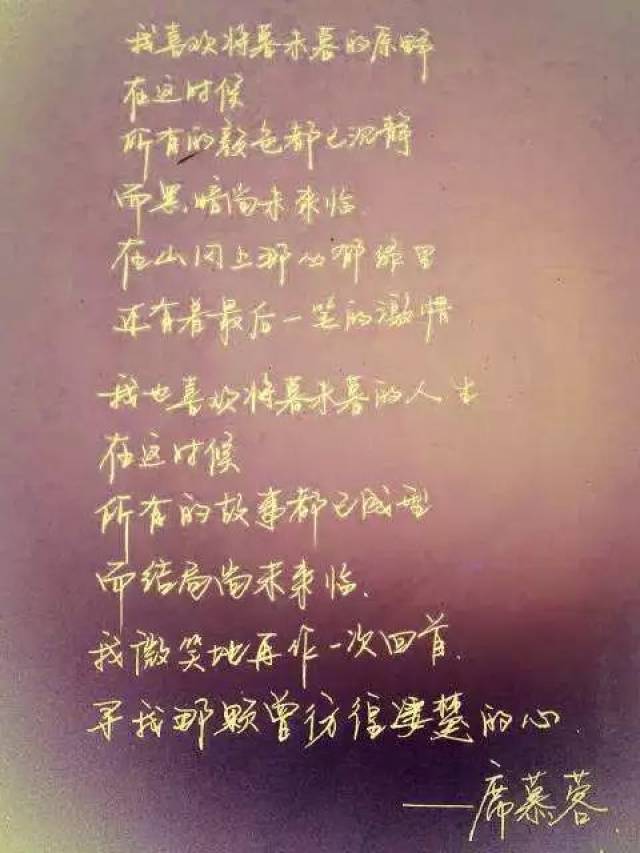 我喜欢将暮未暮的原野
在这时候
所有的颜色都已沉静
而黑暗尚未来临.
在山冈上那丛郁绿里
还有着最后一笔的激情
我也喜欢将暮未暮的人生
在这时候
所有的故事都已成型
而结局尚未来临.
我微笑地再作一次回首.
寻我那颗曾彷徨凄楚的心.
——席慕蓉